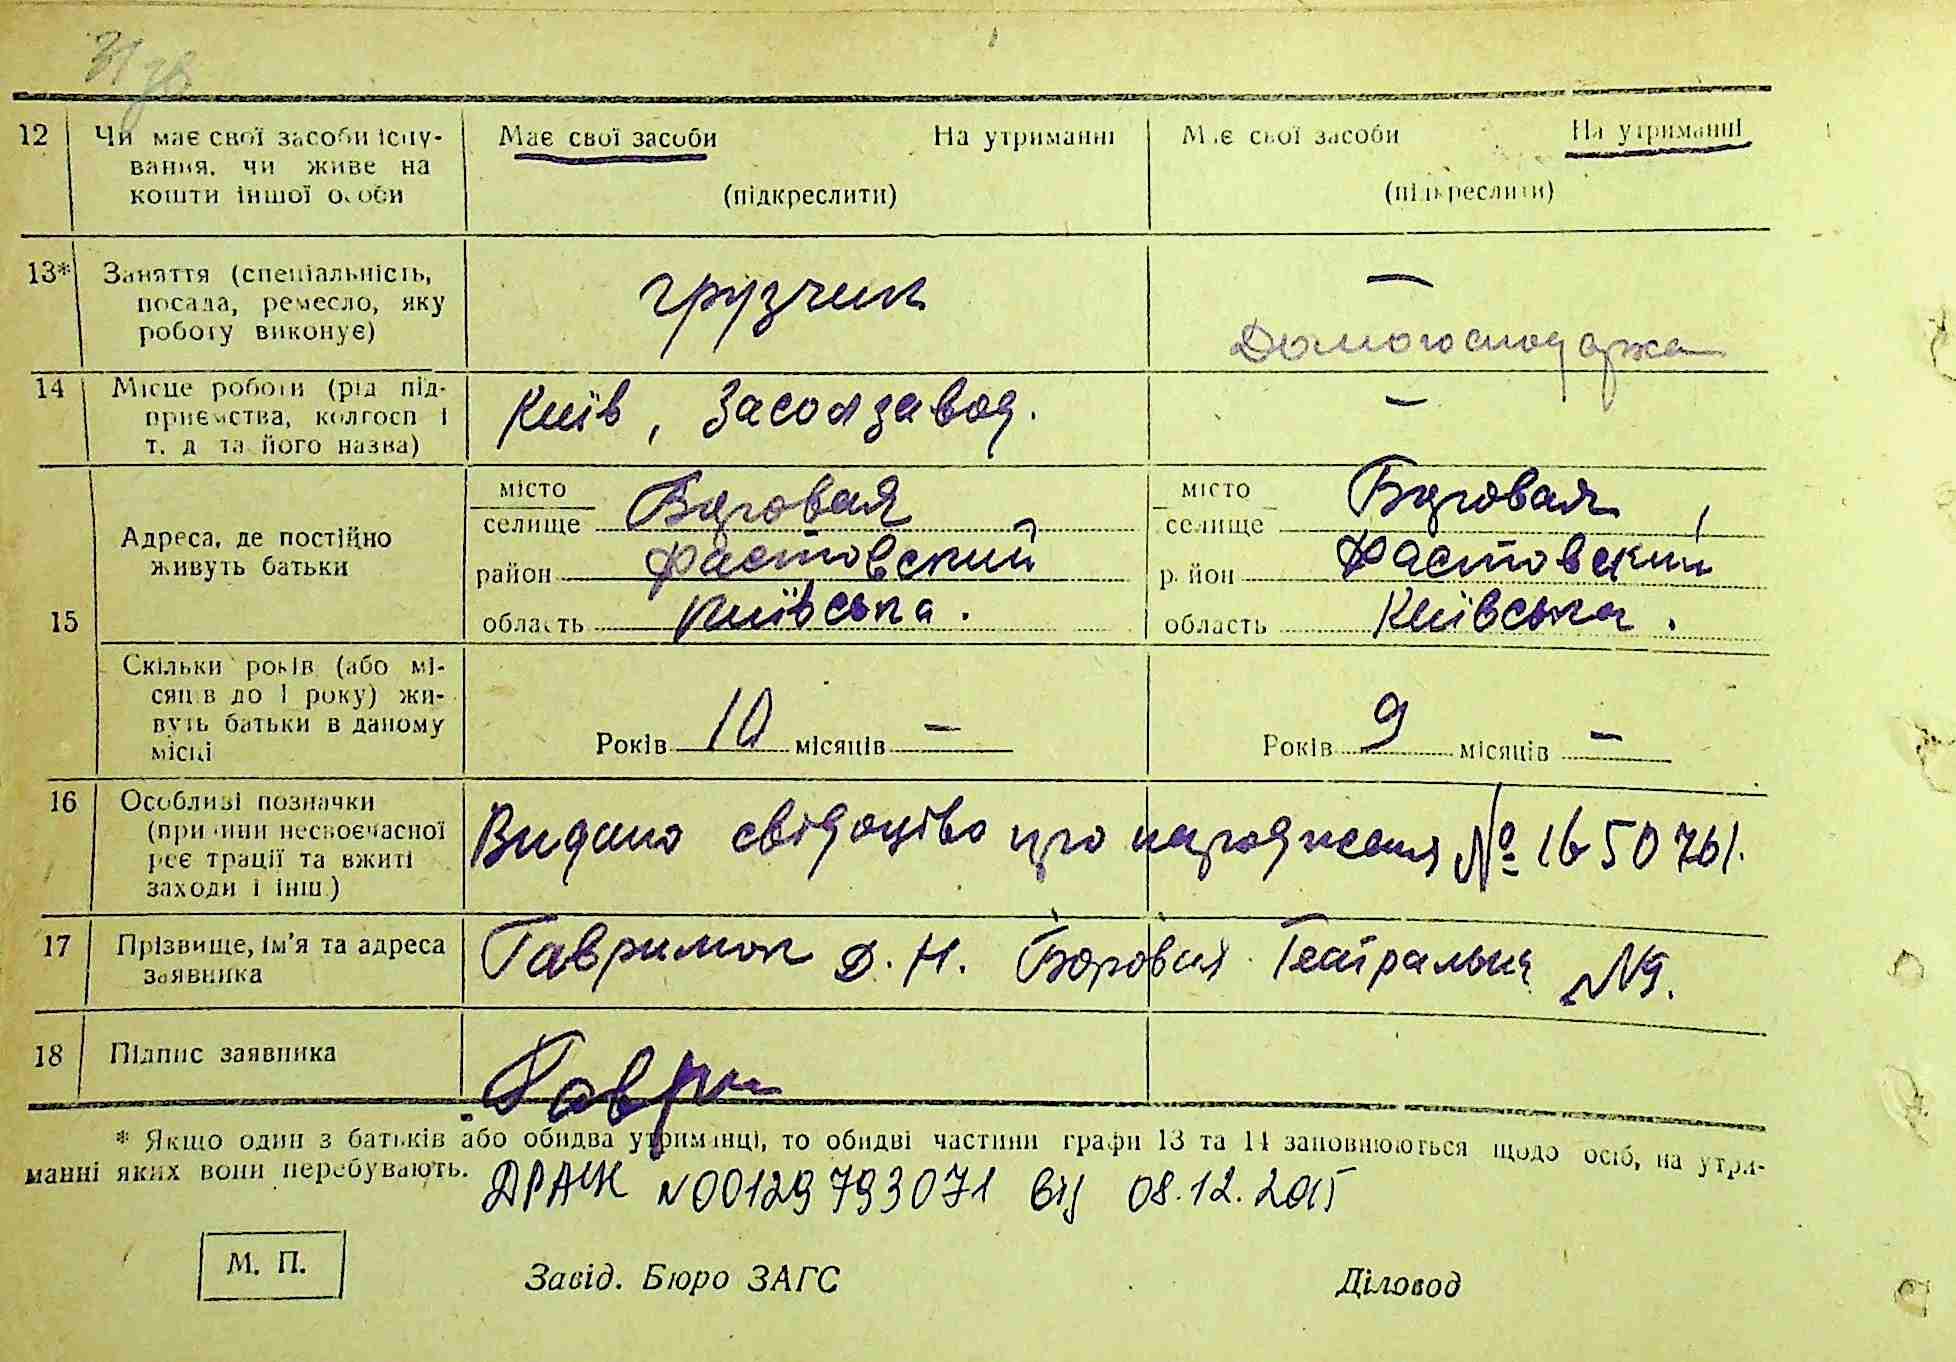 31 зв
12 Чи має свої засоби існу- Має свої засоби На утриманні Має свої засоби На утриманні
вання, чи живе на
кошти іншої особи (підкреслити) (підкреслити)
13* Заняття (спеціальність, грузчик —
посада, ремесло, яку
роботу виконує) Домогосподарка
14 Місце роботи (рід під- Київ, Засолзавод. —
приємства, колгосп і
т. д. та його назва)
15 Адреса, де постійно живуть батьки
місто Боровая місто Боровая,
селище селище
район Фастовский район Фастовский
область Київська. область Київська.
Скільки років (або мі-
сяців до 1 року) жи-
вуть батьки в даному
місці Років 10 місяців — Років 9 місяців —
16 Особливі позначки
(причини несвоєчасної Видано свідоцтво про народження № 1650761.
реєстрації та вжиті
заходи і інш.)
17 Прізвище, ім'я та адреса Гаврилюк Д. Н. Боровая Театральна №9.
заявника
18 Підпис заявника Гаври
* Якщо один з батьків або обидва утриманці, то обидві частини графи 13 та 14 заповнюються щодо осіб, на утри-
манні яких вони перебувають.
ДРАЦС N00129793071 від 08.12.2015
М. П. Завід. Бюро ЗАГС Діловод